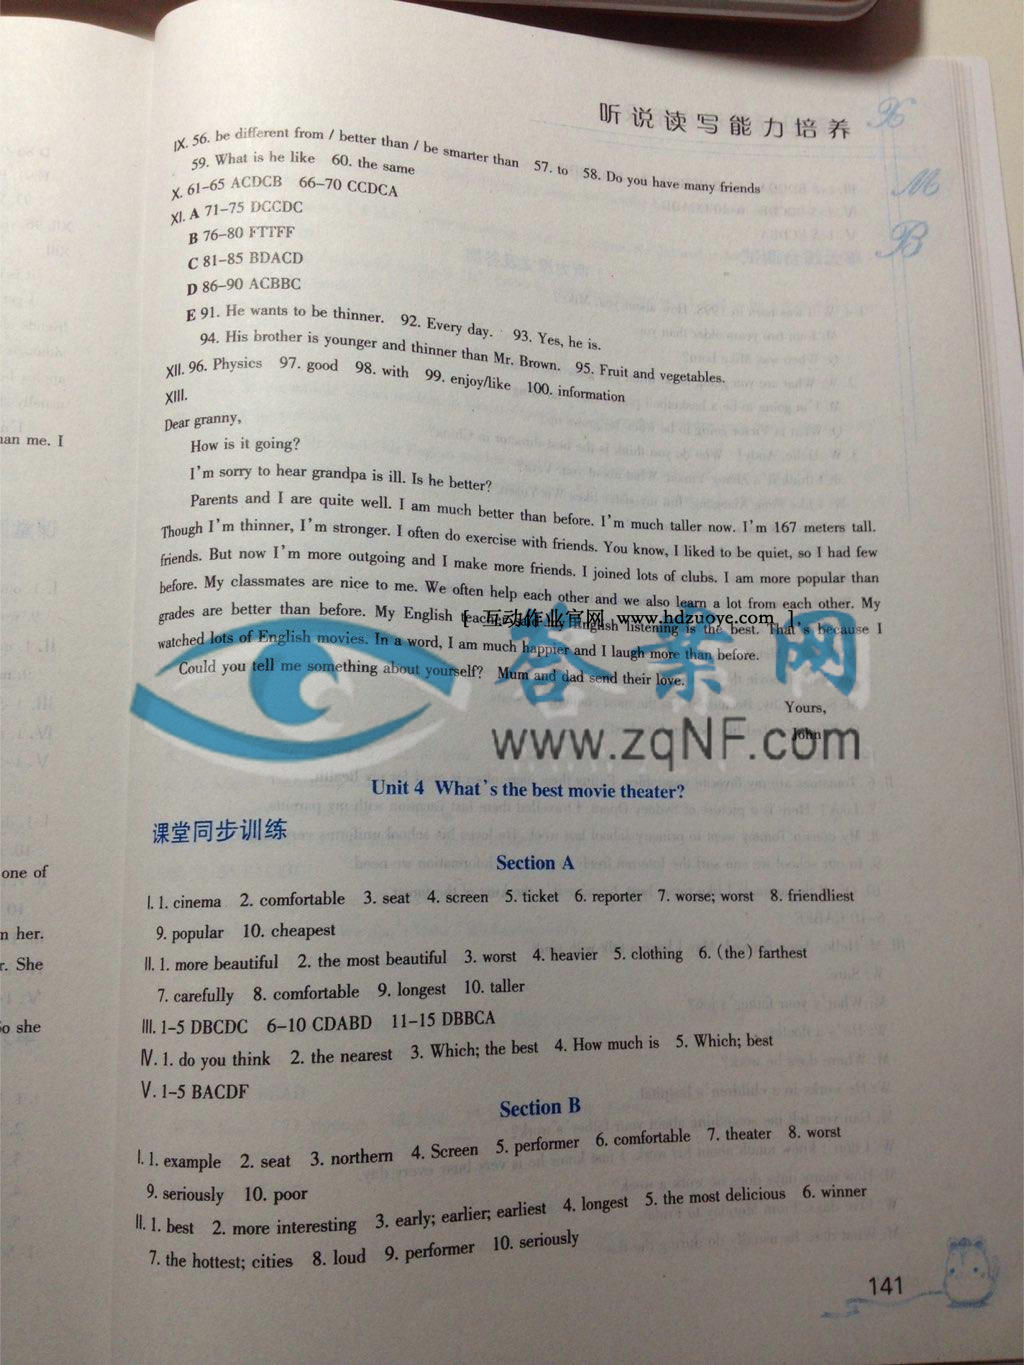 听说读写能力培养
IX. 56. be different from / better than / be smarter than 57. to 58. Do you have many friends
59. What is he like 60. the same
X. 61-65 ACDCB 66-70 CCDCA
XI. A 71-75 DCCDC
B 76-80 FTTFF
C 81-85 BDACD
D 86-90 ACBBC
E 91. He wants to be thinner. 92. Every day. 93. Yes, he is.
94. His brother is younger and thinner than Mr. Brown. 95. Fruit and vegetables.
XII. 96. Physics 97. good 98. with 99. enjoy/like 100. information
XIII.
Dear granny,
How is it going?
I'm sorry to hear grandpa is ill. Is he better?
Parents and I are quite well. I am much better than before. I'm much taller now. I'm 167 meters tall.
Though I'm thinner, I'm stronger. I often do exercise with friends. You know, I liked to be quiet, so I had few
friends. But now I'm more outgoing and I make more friends. I joined lots of clubs. I am more popular than
before. My classmates are nice to me. We often help each other and we also learn a lot from each other. My
grades are better than before. My English listening is the best. That's because I
[ 互动作业官网 www.hdzuoye.com ]
watched lots of English movies. In a word, I am much happier and I laugh more than before.
Could you tell me something about yourself? Mum and dad send their love.
Yours,
John
答案网
www.zqNF.com
Unit 4 What's the best movie theater?
课堂同步训练
Section A
I. 1. cinema 2. comfortable 3. seat 4. screen 5. ticket 6. reporter 7. worse; worst 8. friendliest
9. popular 10. cheapest
II. 1. more beautiful 2. the most beautiful 3. worst 4. heavier 5. clothing 6. (the) farthest
7. carefully 8. comfortable 9. longest 10. taller
III. 1-5 DBCDC 6-10 CDABD 11-15 DBBCA
IV. 1. do you think 2. the nearest 3. Which; the best 4. How much is 5. Which; best
V. 1-5 BACDF
Section B
I. 1. example 2. seat 3. northern 4. Screen 5. performer 6. comfortable 7. theater 8. worst
9. seriously 10. poor
II. 1. best 2. more interesting 3. early; earlier; earliest 4. longest 5. the most delicious 6. winner
7. the hottest; cities 8. loud 9. performer 10. seriously
141
X
M
B
than me. I
one of
n her.
r. She
So she